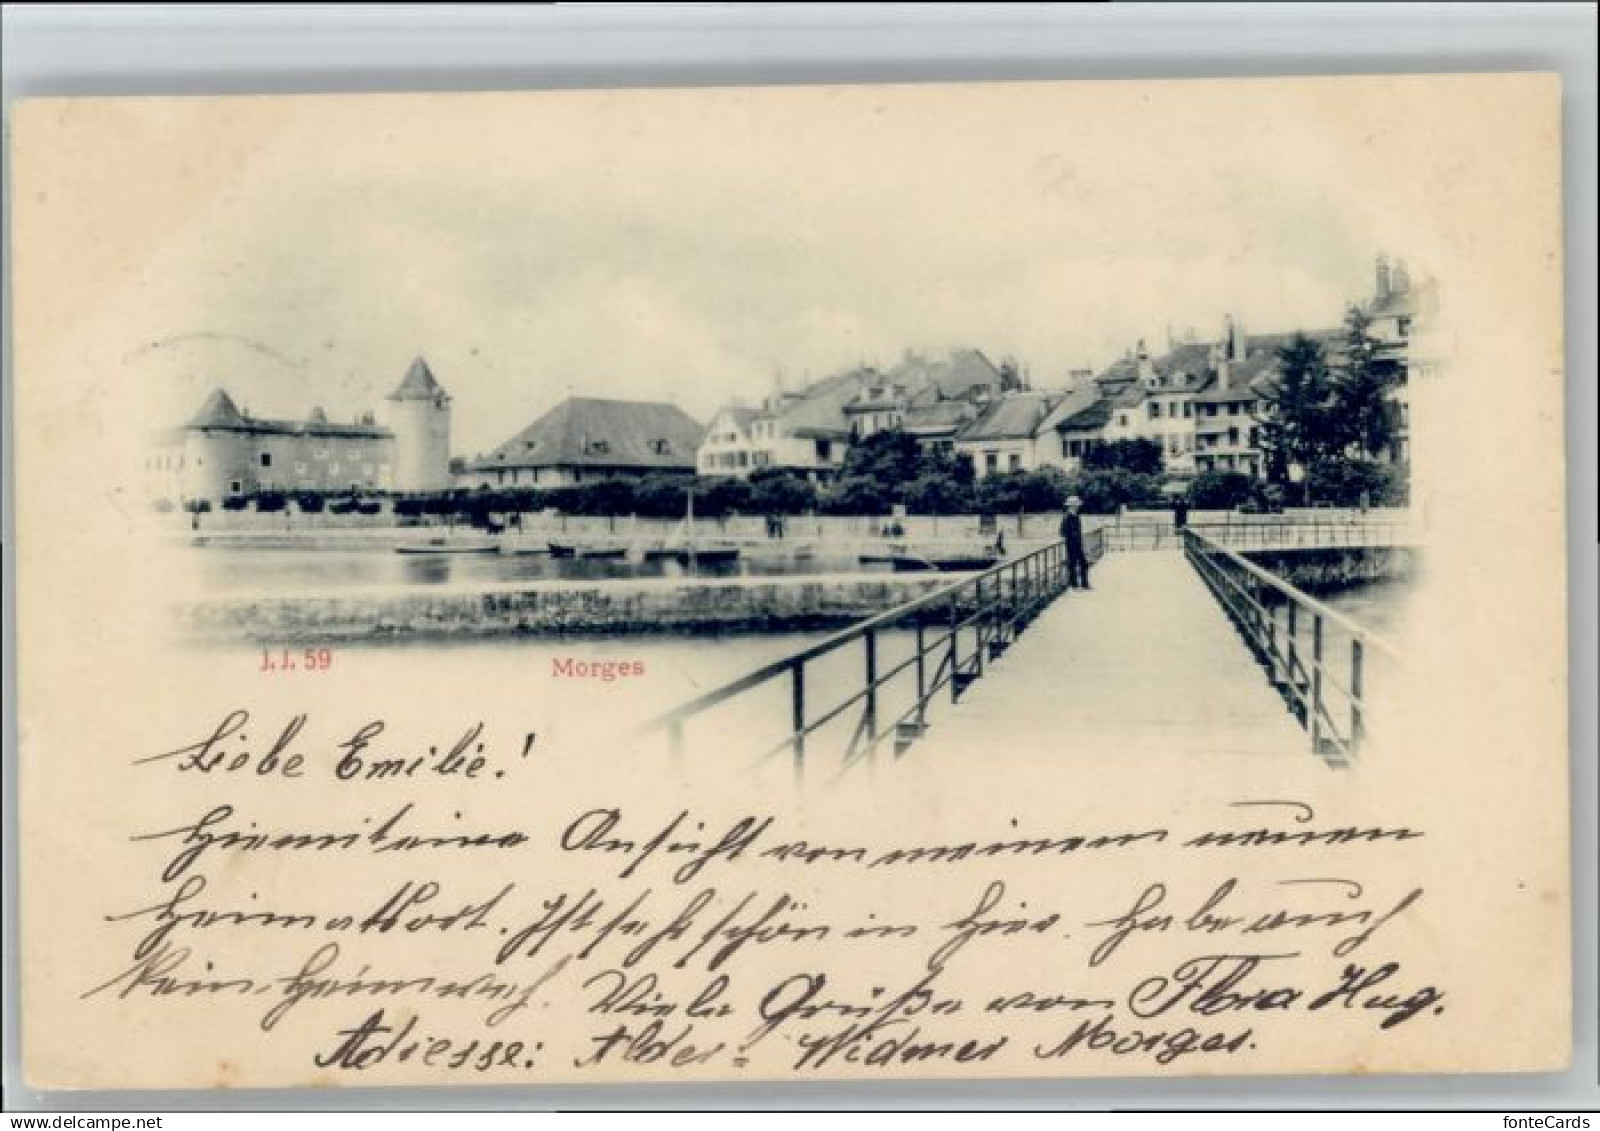 J. J. 59
Morges
Liebe Emilie!
Hiermit eine Ansicht von meinem neuen
Heimatsort. Ist sehr schön in hier. Habe auch
kein Heimweh. Viele Grüße von Flora Hug.
Adresse: Alder-Widmer Morges.
www.delcampe.net
fonteCards